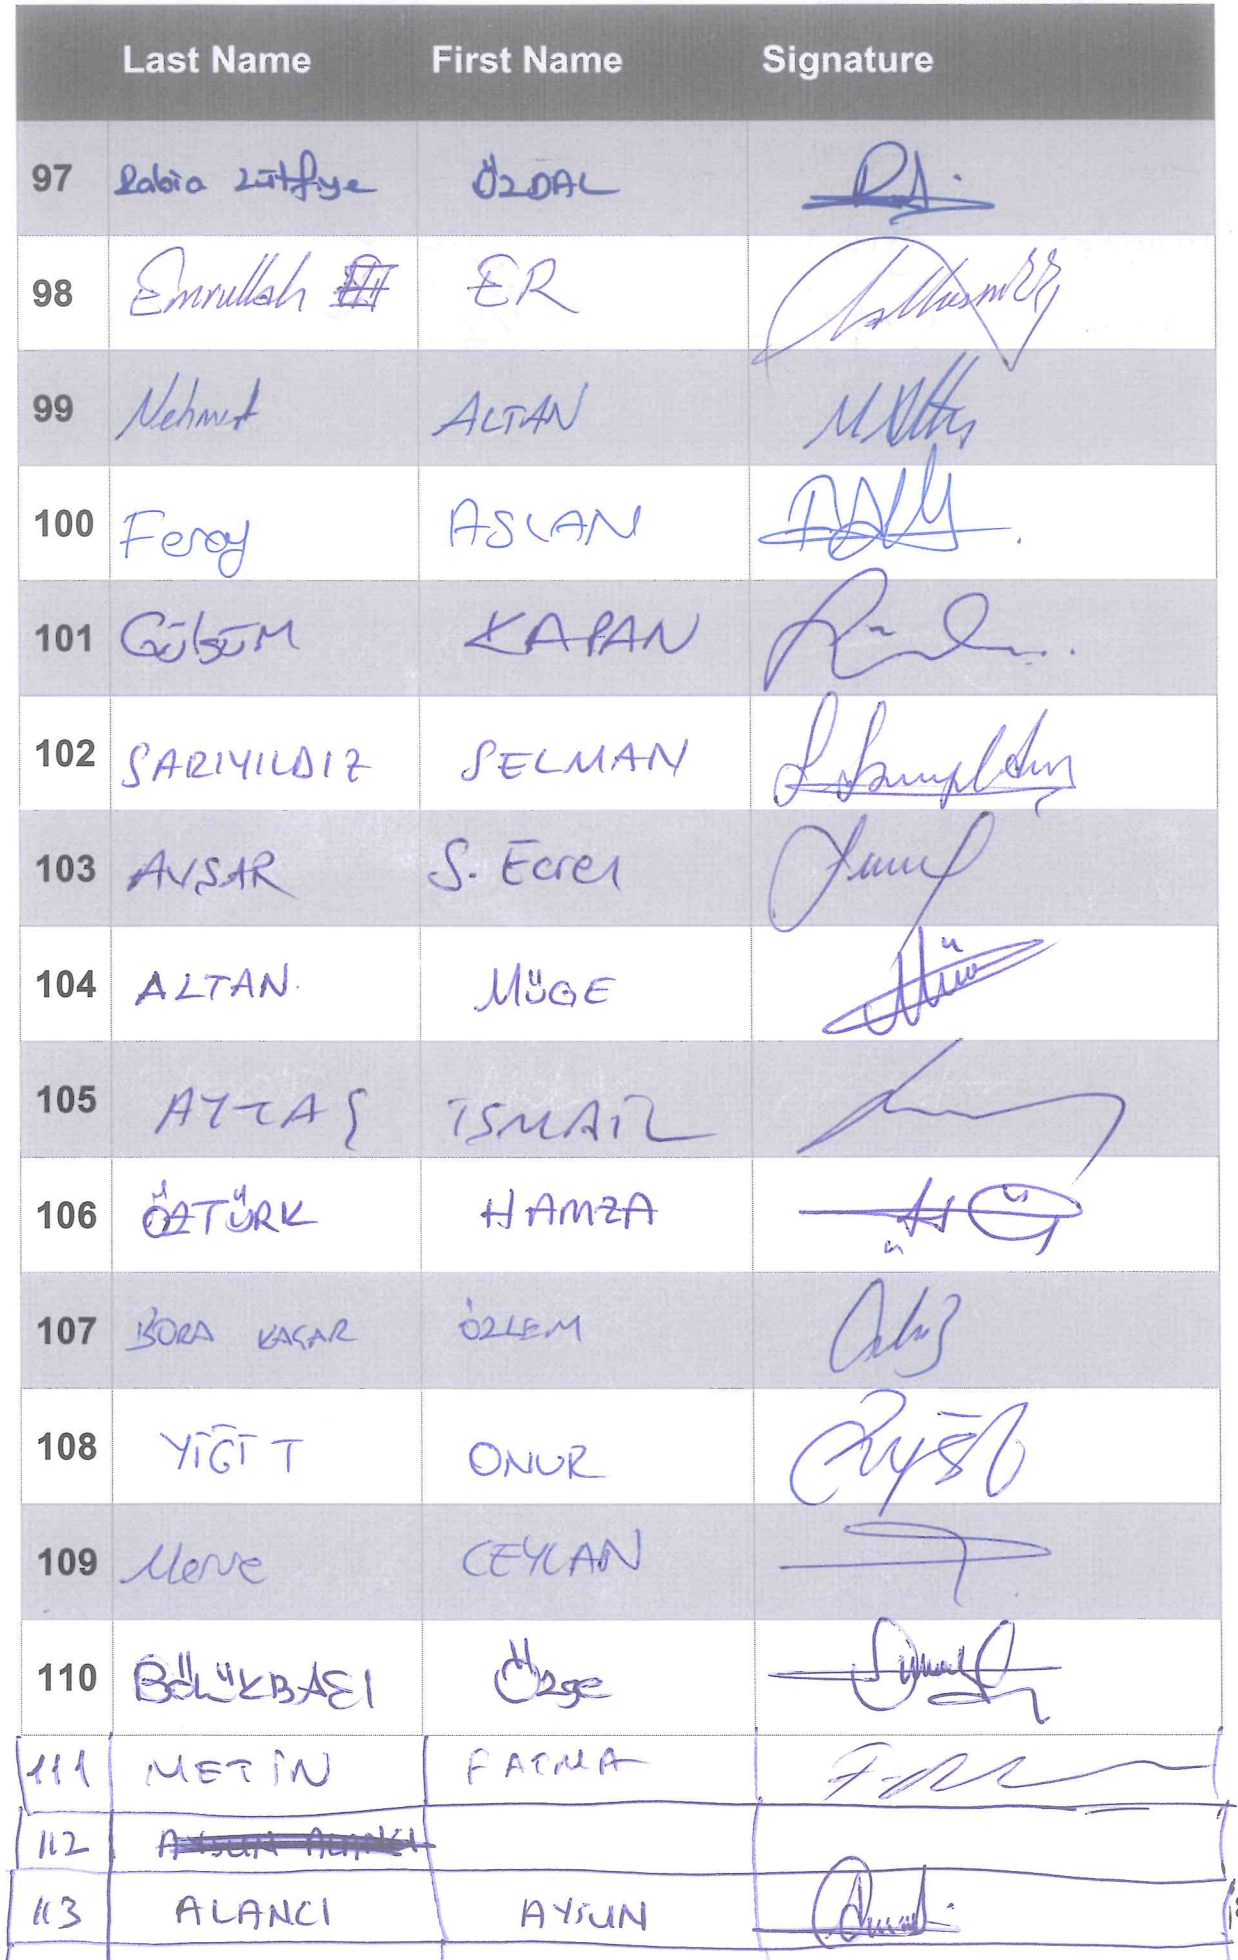 Last Name First Name Signature
97 Rabia Lütfiye ÖZDAL
98 Emrullah ER
99 Mehmet ALTAN
100 Feray ASLAN
101 Gülsüm KAPAN
102 SARIYILDIZ SELMAN
103 AVŞAR S. Ecren
104 ALTAN MÜGE
105 AYTAŞ İSMAİL
106 ÖZTÜRK HAMZA
107 BORA KAÇAR ÖZLEM
108 YİĞİT ONUR
109 Merve CEYLAN
110 BÖLÜKBAŞI Özge
111 METİN FATMA
112 AYSUN ALANCI
113 ALANCI AYSUN